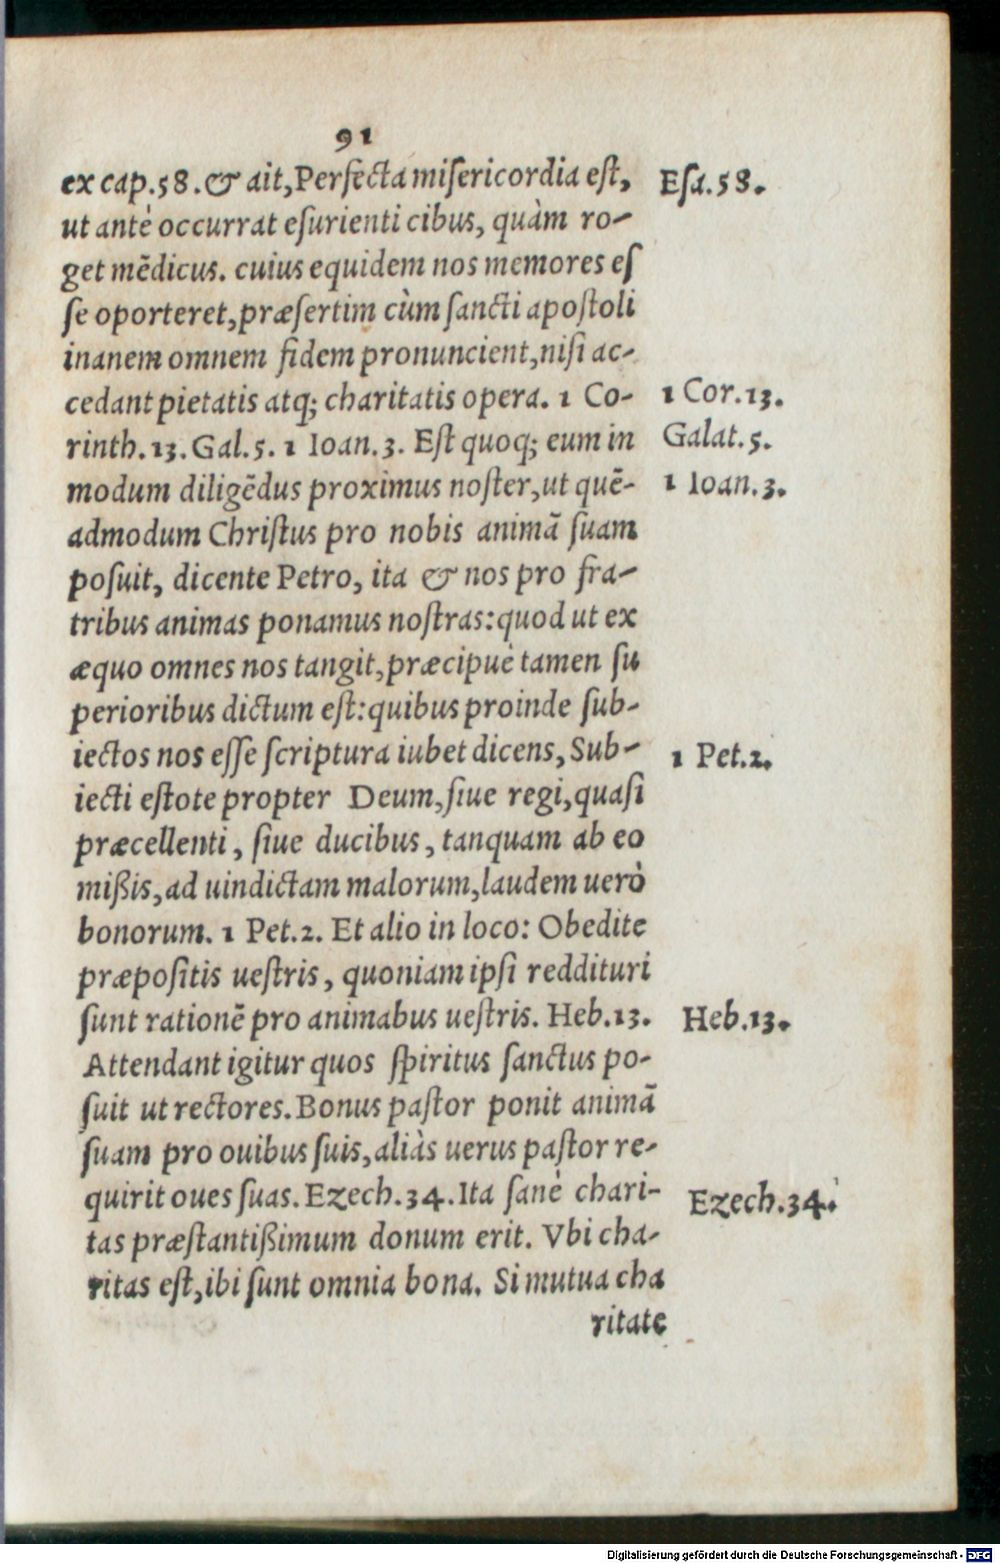 91
ex cap.58.& ait,Perfecta misericordia est, Esa.58.
ut antè occurrat esurienti cibus, quàm ro-
get mẽdicus. cuius equidem nos memores es
se oporteret,præsertim cùm sancti apostoli
inanem omnem fidem pronuncient,nisi ac-
cedant pietatis atq; charitatis opera. 1 Co- 1 Cor.13.
rinth.13.Gal.5.1 Ioan.3. Est quoq; eum in Galat.5.
modum diligẽdus proximus noster,ut quẽ- 1 Ioan.3.
admodum Christus pro nobis animã suam
posuit, dicente Petro, ita & nos pro fra-
tribus animas ponamus nostras:quod ut ex
æquo omnes nos tangit,præcipuè tamen su
perioribus dictum est:quibus proinde sub-
iectos nos esse scriptura iubet dicens, Sub- 1 Pet.2.
iecti estote propter Deum,siue regi,quasi
præcellenti, siue ducibus, tanquam ab eo
mißis,ad uindictam malorum,laudem uerò
bonorum. 1 Pet.2. Et alio in loco: Obedite
præpositis uestris, quoniam ipsi reddituri
sunt rationẽ pro animabus uestris. Heb.13. Heb.13.
Attendant igitur quos spiritus sanctus po-
suit ut rectores.Bonus pastor ponit animã
suam pro ouibus suis,aliàs uerus pastor re-
quirit oues suas.Ezech.34.Ita sanè chari- Ezech.34.
tas præstantißimum donum erit. Vbi cha-
ritas est,ibi sunt omnia bona. Si mutua cha
ritate
Digitalisierung gefördert durch die Deutsche Forschungsgemeinschaft - DFG